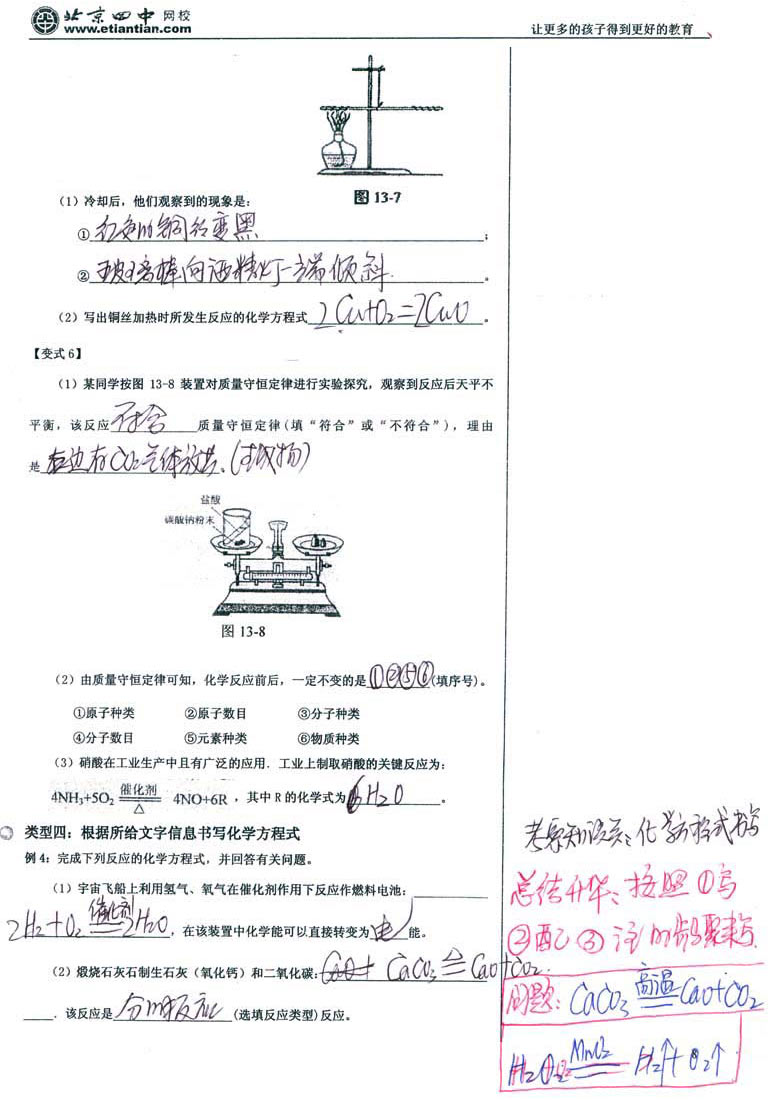 北京四中 网校
www.etiantian.com
让更多的孩子得到更好的教育
图 13-7
(1) 冷却后，他们观察到的现象是：
① 红色的铜丝变黑 ；
② 玻璃棒向酒精灯一端倾斜. 。
(2) 写出铜丝加热时所发生反应的化学方程式 2Cu+O₂=2CuO 。
【变式 6】
(1) 某同学按图 13-8 装置对质量守恒定律进行实验探究，观察到反应后天平不
平衡，该反应 符合 质量守恒定律(填“符合”或“不符合”)，理由
是 右边有CO₂气体放出。(生成物)
盐酸
碳酸钠粉末
图 13-8
(2) 由质量守恒定律可知，化学反应前后，一定不变的是 ①②⑤⑥ (填序号)。
①原子种类 ②原子数目 ③分子种类
④分子数目 ⑤元素种类 ⑥物质种类
(3) 硝酸在工业生产中且有广泛的应用．工业上制取硝酸的关键反应为：
催化剂
4NH₃+5O₂ ══ 4NO+6R ，其中 R 的化学式为 H₂O 。
△
类型四：根据所给文字信息书写化学方程式
例 4：完成下列反应的化学方程式，并回答有关问题。
(1) 宇宙飞船上利用氢气、氧气在催化剂作用下反应作燃料电池：
催化剂
2H₂+O₂ ══ 2H₂O ，在该装置中化学能可以直接转变为 电 能。
(2) 煅烧石灰石制生石灰（氧化钙）和二氧化碳： CaCO₃ △══ CaO+CO₂.
．该反应是 分解反应 (选填反应类型)反应。
考察知识点：化学方程式书写
总结升华：按照①写
②配③注的步骤来写.
问题：CaCO₃ 高温══ CaO+CO₂
H₂O₂ MnO₂══ H₂↑+O₂↑